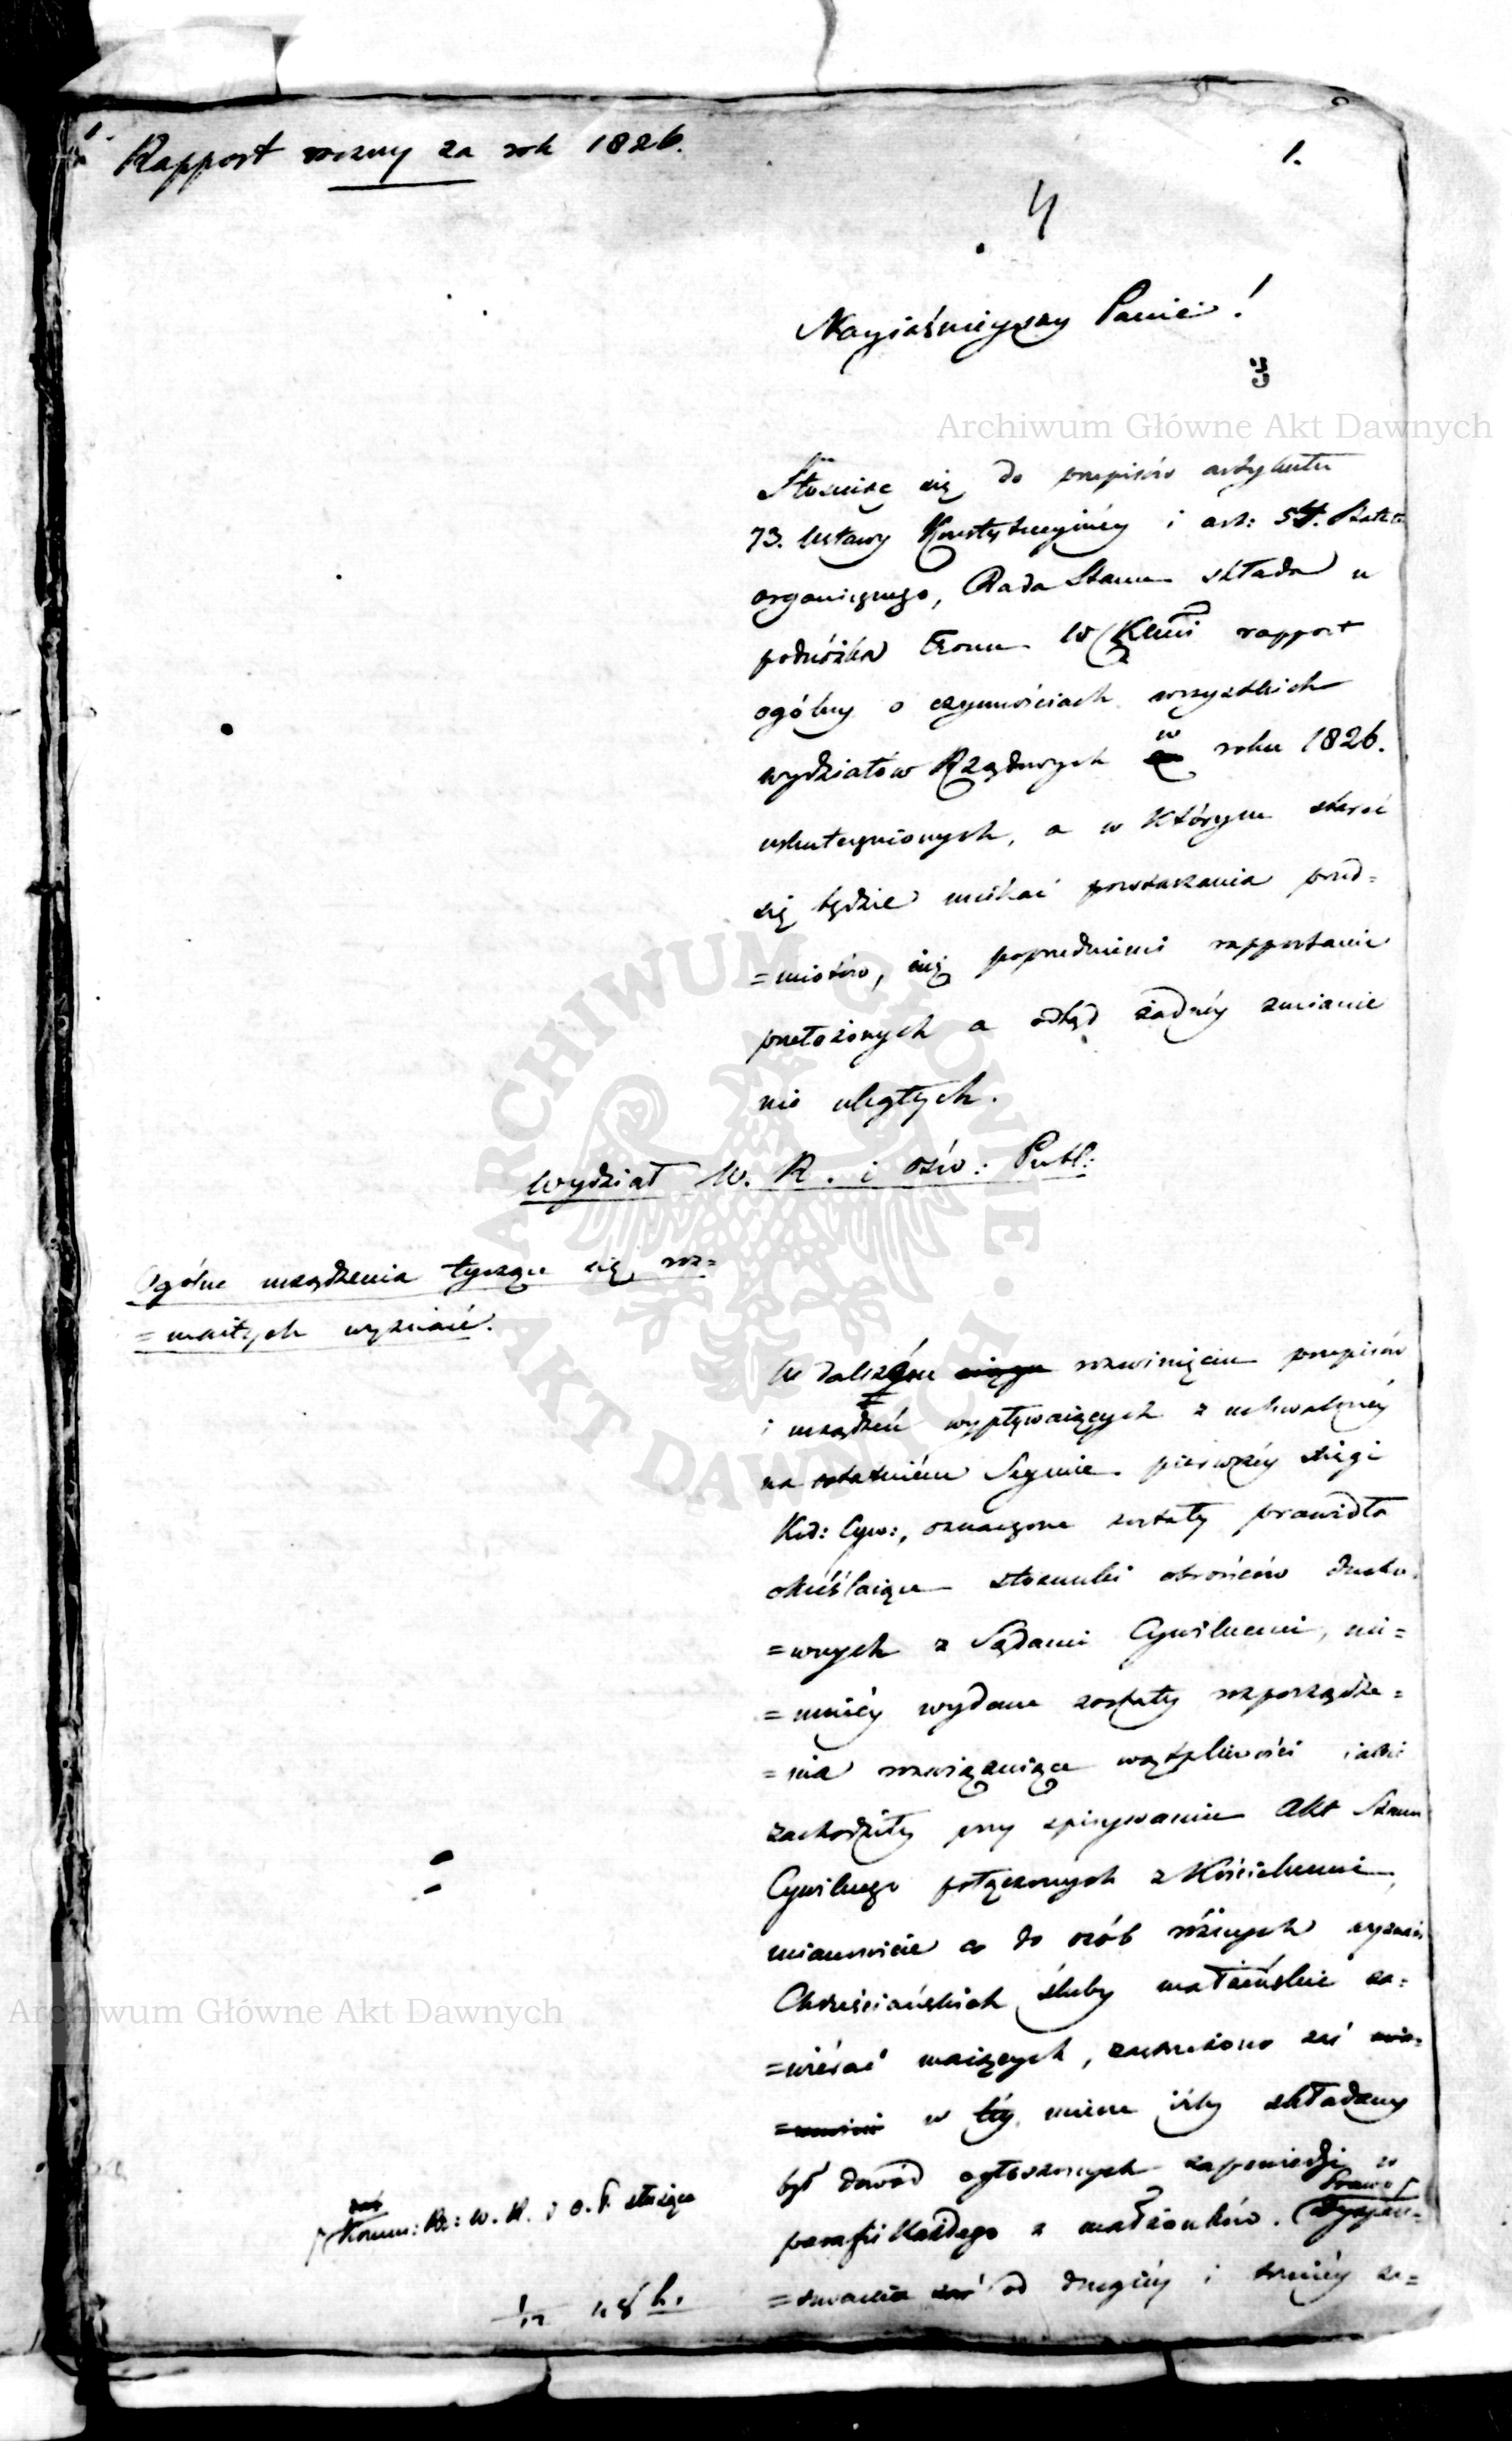 Rapport roczny za rok 1826.
1.
4
Nayiaśnieyszy Panie!
3
Archiwum Główne Akt Dawnych
Stosuiąc się do przepisów artykułu
73. Ustawy Konstytucyinéy i art: 54. Statutu
organicznego, Rada Stanu składa u
podnóżka Tronu W. K. Mci rapport
ogólny o czynnościach wszystkich
w
wydziałów Rządowych roku 1826.
uskutecznionych, a w którym starać
się będzie unikać powtarzania przed=
=miotów, iuż poprzedniemi rapportami
przełożonych a odtąd żadnéy zmianie
nie uległych.
Wydział W. R. i Ośw: Publ:
Ogólne urządzenia tyczące się roz=
=maitych wyznań.
W dalszém ciągu rozwinięciu przepisów
i urządzeń wypływaiących z uchwalonéy
na ostatnim Seymie pierwszéy księgi
Kod: Cyw:, oznaczone zostały prawidła
określaiące stosunki obrońców ducho=
=wnych z Sądami Cywilnemi, nie=
=mniéy wydane zostały rozporządze=
=nia rozwiązuiące wątpliwości iakie
zachodziły przy spisywaniu Akt Stanu
Cywilnego połączonych z Kościelnemi,
mianowicie co do osób różnych wyznań
Chrześciańskich śluby małżeńskie za=
=wierać maiących, zastrzeżono zaś
w téy mierze iżby składany
był dowód ogłoszonych zapowiedzi w
parafii każdego z małżonków. Prawo
dyspen=
=sowania zaś od drugiéy i trzeciéy za=
zaś
Komm: Rz: W. R. i O. P. służące
Archiwum Główne Akt Dawnych
ARCHIWUM GŁÓWNE AKT DAWNYCH